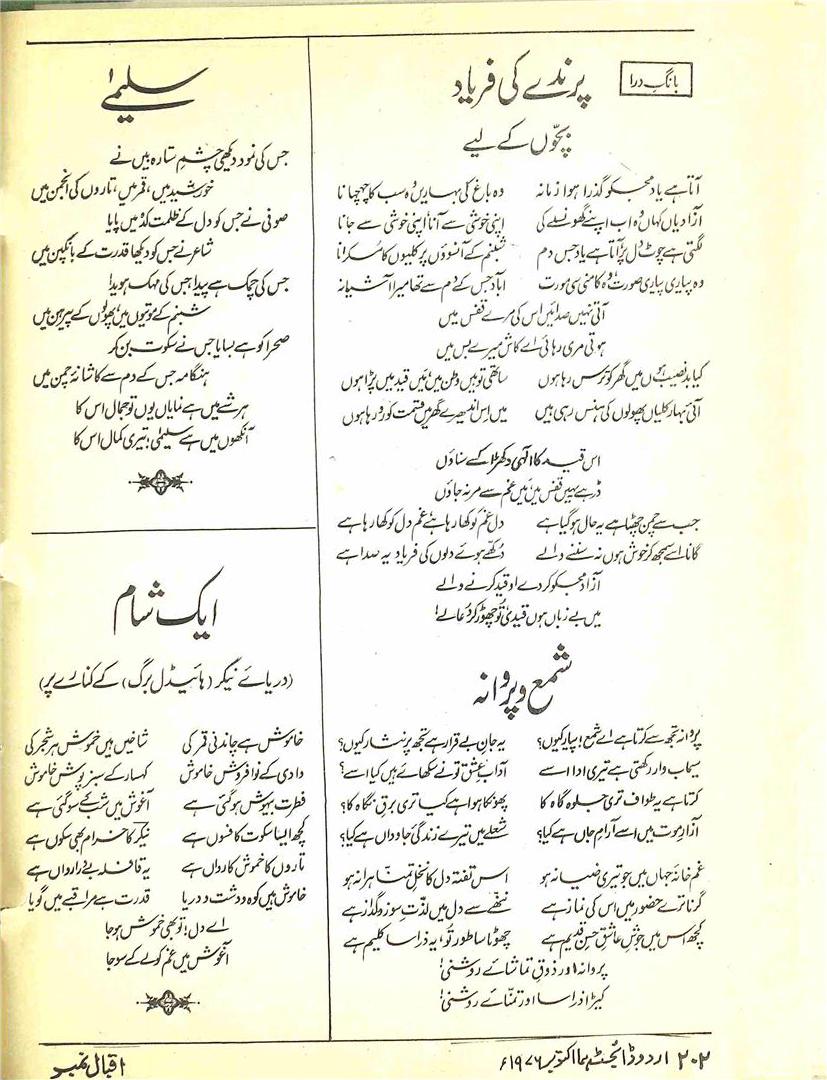 بانگِ درا
پرندے کی فریاد
بچّوں کے لیے
آتا ہے یاد مجکو گذرا ہوا زمانہ وہ باغ کی بہاریں وہ سب کا چہچہانا
آزادیاں کہاں وہ اب اپنے گھونسلے کی اپنی خوشی سے آنا اپنی خوشی سے جانا
لگتی ہے چوٹ دل پر آتا ہے یاد جس دم شبنم کے آنسوؤں پر کلیوں کا مُسکرانا
وہ پیاری پیاری صورت وہ کامنی سی مورت آباد جس کے دم سے تھا میرا آشیانہ
آتی نہیں صدائیں اس کی مرے قفس میں
ہوتی مری رہائی اے کاش میرے بس میں
کیا بدنصیب ہوں میں گھر کو ترس رہا ہوں ساتھی تو ہیں وطن میں مَیں قید میں پڑا ہوں
آئی بہار کلیاں پھولوں کی ہنس رہی ہیں میں اس اندھیرے گھر میں قسمت کو رو رہا ہوں
اس قید کا الٰہی دُکھڑا کسے سناؤں
ڈر ہے یہیں قفس میں مَیں غم سے مر نہ جاؤں
جب سے چمن چھٹا ہے یہ حال ہو گیا ہے دل غم کو کھا رہا ہے، غم دل کو کھا رہا ہے
گانا اسے سمجھ کر خوش ہوں نہ سننے والے دُکھّے ہوئے دلوں کی فریاد یہ صدا ہے
آزاد مجکو کر دے او قید کرنے والے
میں بے زباں ہوں قیدی، تُو چھوڑ کر دُعا لے!
شمع و پروانہ
پروانہ تجھ سے کرتا ہے اے شمع! پیار کیوں؟ یہ جانِ بے قرار ہے تجھ پر نثار کیوں؟
سیماب وار رکھتی ہے تیری ادا اسے آدابِ عشق تو نے سکھائے ہیں کیا اسے؟
کرتا ہے یہ طواف تری جلوہ گاہ کا پھونکا ہوا ہے کیا تری برقِ نگاہ کا؟
آزارِ موت میں اسے آرامِ جاں ہے کیا؟ شعلے میں تیرے زندگیِ جاوداں ہے کیا؟
غم خانۂ جہاں میں جو تیری ضیا نہ ہو اس تفتہ دل کا نخلِ تمنّا ہرا نہ ہو
گرنا ترے حضور میں اس کی نماز ہے ننھّے سے دل میں لذّتِ سوز و گداز ہے
کچھ اس میں جوشِ عاشقِ حسنِ قدیم ہے چھوٹا سا طور تُو، یہ ذرا سا کلیم ہے
پروانہ اور ذوقِ تماشائے روشنی!
کیڑا ذرا سا اور تمنّائے روشنی!
سلیمےٰ
جس کی نمود دیکھی چشمِ ستارہ بیں نے
خورشید میں، قمر میں، تاروں کی انجمن میں
صوفی نے جس کو دل کے ظلمت کدہ میں پایا
شاعر نے جس کو دیکھا قدرت کے بانکپن میں
جس کی چمک ہے پیدا جس کی مہک ہویدا!
شبنم کے موتیوں میں، پھولوں کے پیرہن میں
صحرا کو ہے بسایا جس نے سکوت بن کر
ہنگامہ جس کے دم سے کاشانۂ چمن میں
ہر شے میں ہے نمایاں یوں تو جمال اس کا
آنکھوں میں ہے سلیمٰی! تیری کمال اس کا
ایک شام
(دریائے نیکر (ہائیڈل برگ) کے کنارے پر)
خاموش ہے چاندنی قمر کی شاخیں ہیں خموش ہر شجر کی
وادی کے نوا فروش خاموش کہسار کے سبز پوش خاموش
فطرت بیہوش ہو گئی ہے آغوش میں شب کے سو گئی ہے
کچھ ایسا سکوت کا فسوں ہے نیکر کا خرام بھی سکوں ہے
تاروں کا خموش کارواں ہے یہ قافلہ بے درا رواں ہے
خاموش ہیں کوہ و دشت و دریا قدرت ہے مراقبے میں گویا
اے دل! تو بھی خموش ہو جا
آغوش میں غم کو لے کے سو جا
۲۰۲ اردو ڈائجسٹ ہما اکتوبر ۱۹۷۶ء اقبال نمبر